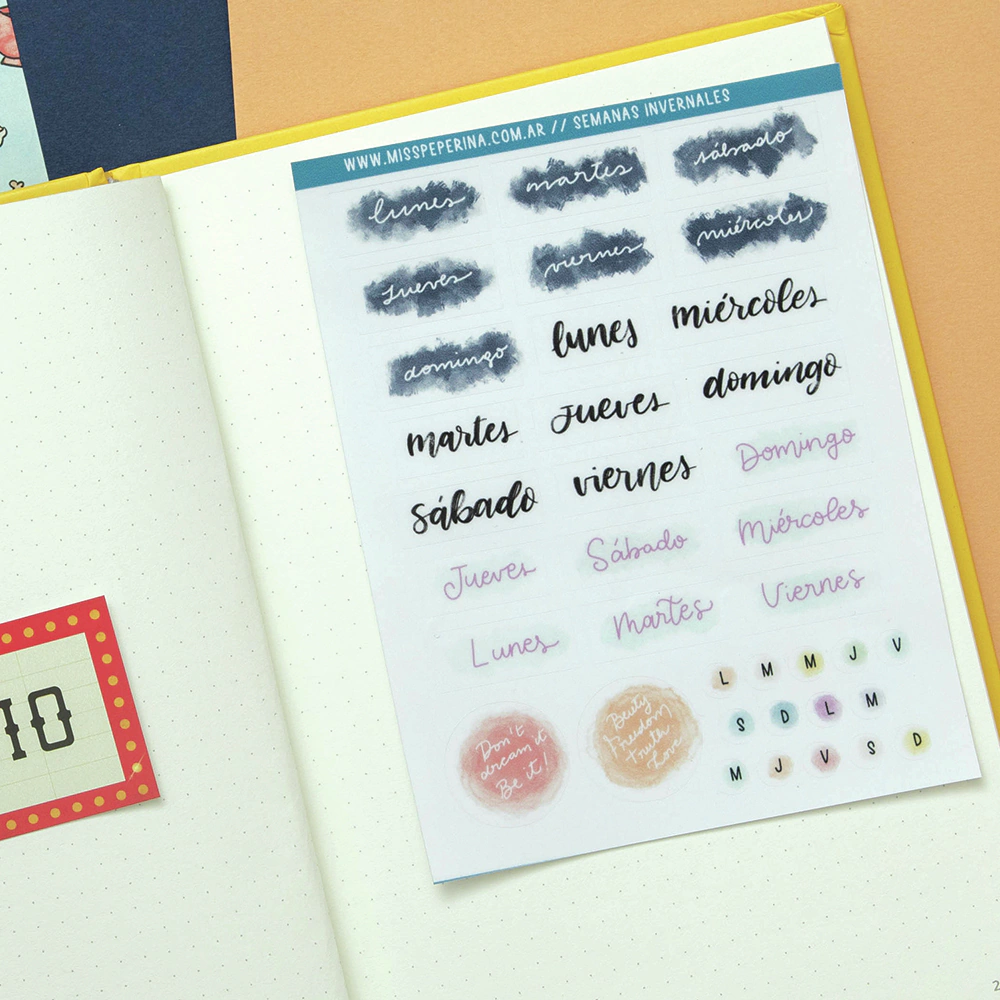 WWW.MISSPEPERINA.COM.AR // SEMANAS INVERNALES
lunes martes sábado
jueves viernes miércoles
domingo lunes miércoles
martes jueves domingo
sábado viernes Domingo
Jueves Sábado Miércoles
Lunes Martes Viernes
L M M J V
S D L M
M J V S D
Don't
dream it
Be it!
Beuty
Freedom
Truth
Love
IO
2